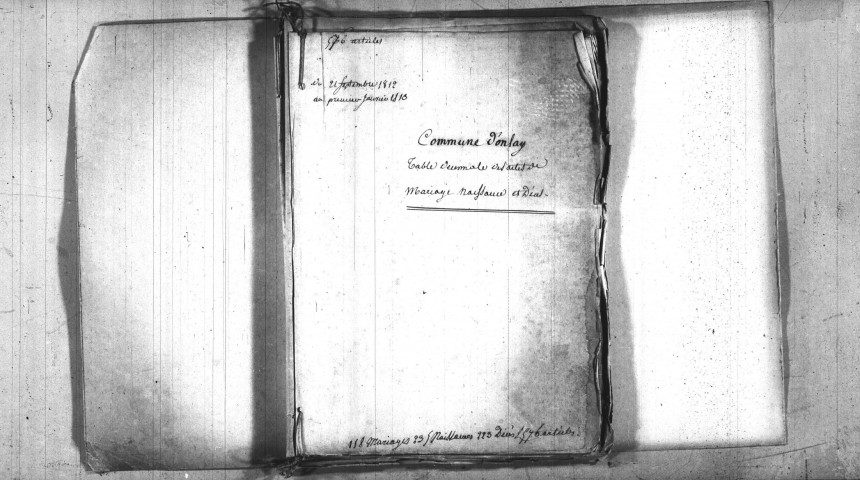 576 articles
du 21 septembre 1812
au premier janvier 1813
Commune d'onlay
Table décennale des actes de
Mariage Naissance et Décès.
118 Mariages 235 Naissances 223 Décès 576 articles.